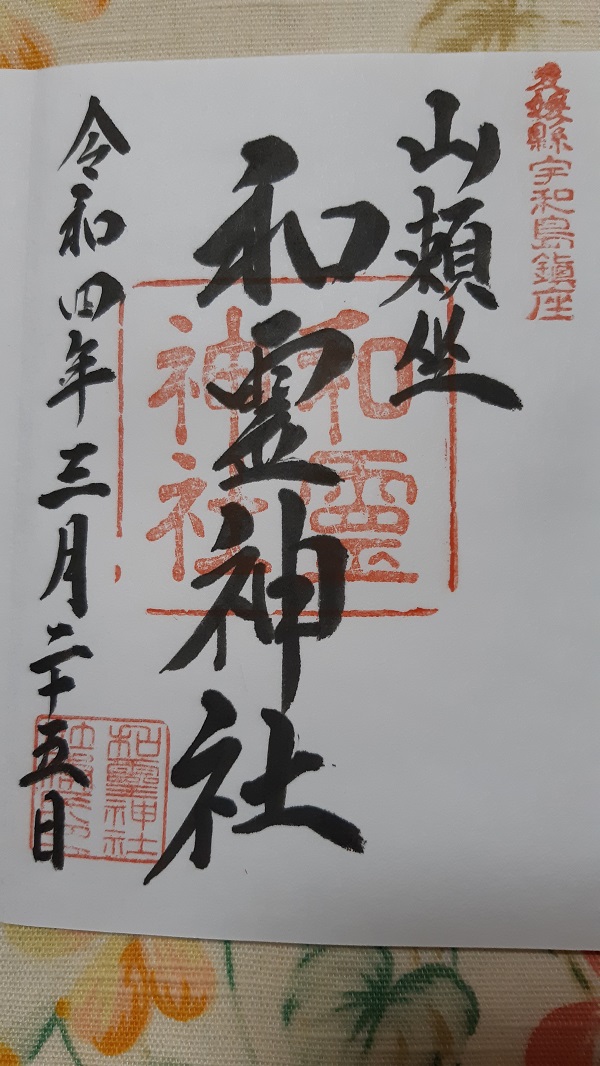 愛媛縣宇和島鎮座
山頬坐
和霊神社
和靈神社
令和四年三月二十五日
和靈神社